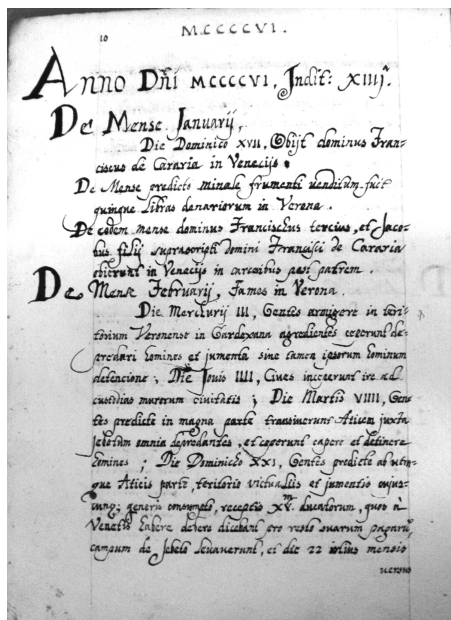 10
MCCCCVI.
Anno Dñi MCCCCVI, Indit: XIIIJ.
De Mense Januarij,
Die Dominico XVII, Obijt dominus Fran-
ciscus de Cararia in Venecijs.
De Mense predicto minale frumenti venditum fuit
quinque libras denariorum in Verona.
De eodem mense dominus Franciscus tercius, et Jaco-
bus filij suprascripti domini Francisci de Cararia
obierunt in Venecijs in carceribus post patrem.
De Mense Februarij, Fames in Verona.
Die Mercurij III, Gentes armigere in teri-
torium Veronense in Gardexana agredientes ceperunt de-
predari homines et jumenta sine tamen ipsorum hominum
detencione; Die Jovis IIII, Cives inceperunt ire ad
custodias murorum civitatis; Die Martis VIIII, Gen-
tes predicte in magna parte transiverunt Aticem juxta
Jebetum omnia depredantes, et ceperunt capere et detinere
homines; Die Dominico XXI, Gentes predicte ab utra-
que Aticis parte, teritorio victualiis et jumentis cujus-
cunq; generis consumpto, receptis XV.m ducatorum, quos à
Venetis habere debere dicebant pro resto suarum pagarum
campum de Jebeto levaverunt, et die 22 istius mensis
versus